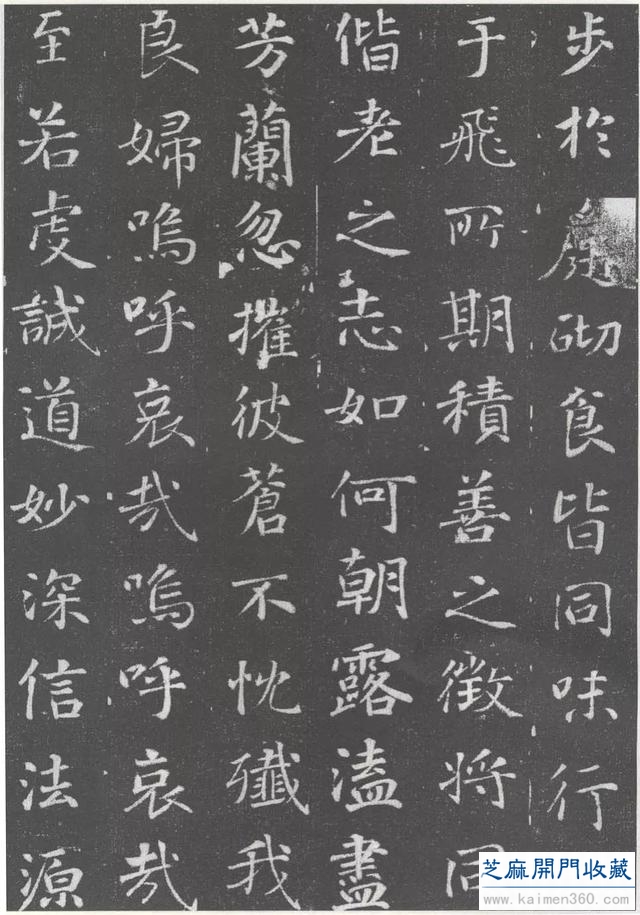 步於庭砌食皆同味行
于飛所期積善之徵將同
偕老之志如何朝露溘盡
芳蘭忽摧彼蒼不忱殲我
良婦嗚呼哀哉嗚呼哀哉
至若虔誠道妙深信法源
芝麻開門收藏
www.kaimen360.com